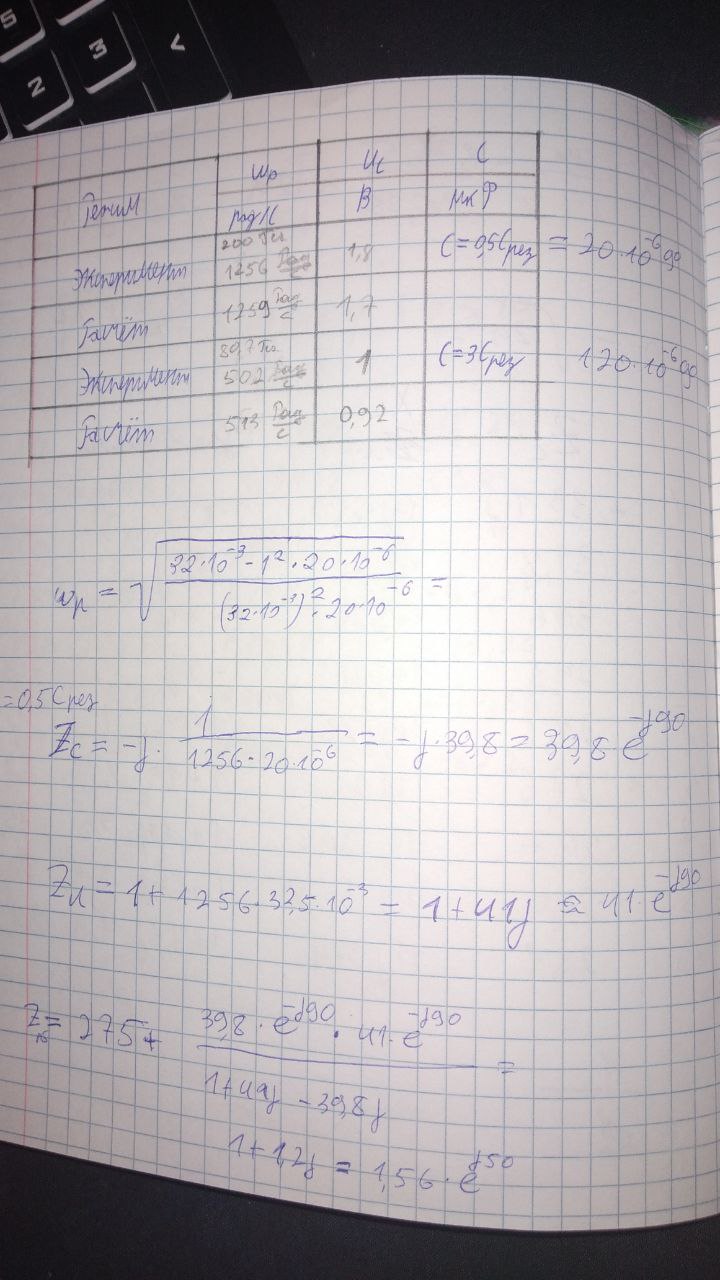 5
2
3
<
Режим
ωр
рад/с
Uс
В
C
мкФ
Эксперимент
200 Гц
1256 Рад/с
1,8
C=0,5Cрез = 20·10⁻⁶
Расчёт
1259 Рад/с
1,7
Эксперимент
89,7 Гц
502 Рад/с
1
C=3Cрез 120·10⁻⁶
Расчёт
513 Рад/с
0,92
ωр = √((32·10⁻³ - 1²·20·10⁻⁶)/((32·10⁻³)²·20·10⁻⁶)) =
=0,5Cрез
Zс = -j· 1/(1256·20·10⁻⁶) = -j·39,8 = 39,8·e^-j90
Zл = 1+1256·32,5·10⁻³ = 1+41j ≈ 41·e^-j90
Z = 275 + (39,8·e^-j90 · 41·e^-j90)/(1+41j - 39,8j) =
1+1,2j = 1,56·e^j50